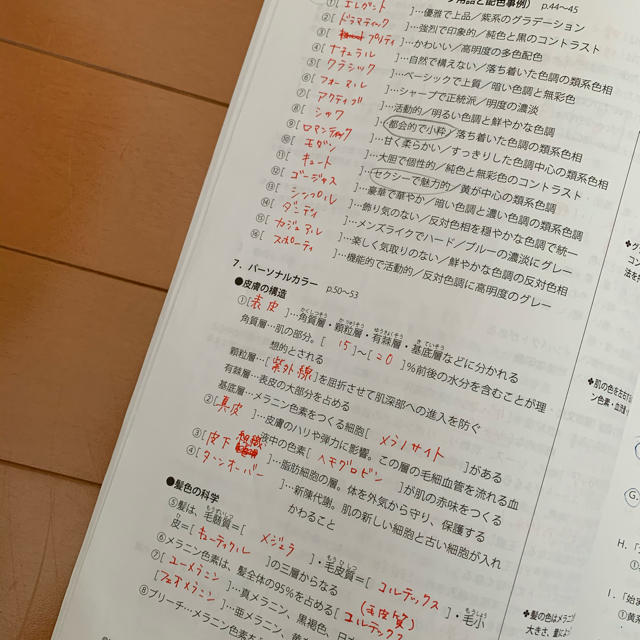 用語と配色事例） p.44〜45
①[ エレガント ]…優雅で上品／紫系のグラデーション
②[ ドラマティック ]…強烈で印象的／純色と黒のコントラスト
③[ プリティ ]…かわいい／高明度の多色配色
④[ ナチュラル ]…自然で構えない／落ち着いた色調の類系色相
⑤[ クラシック ]…ベーシックで上質／暗い色調と無彩色
⑥[ フォーマル ]…シャープで正統派／明度の濃淡
⑦[ アクティブ ]…活動的／明るい色調と鮮やかな色調
⑧[ シック ]…都会的で小粋／落ち着いた色調の類系色相
⑨[ ロマンティック ]…甘く柔らかい／すっきりした色調中心の類系色相
⑩[ モダン ]…大胆で個性的／純色と無彩色のコントラスト
⑪[ キュート ]…セクシーで魅力的／黄が中心の類系色調
⑫[ ゴージャス ]…豪華で華やか／暗い色調と濃い色調の類系色調
⑬[ シンプル ]…飾り気のない／反対色相を穏やかな色調で統一
⑭[ ダンディ ]…メンズライクでハード／ブルーの濃淡にグレー
⑮[ カジュアル ]…楽しく気取りのない／鮮やかな色調の反対色相
⑯[ スポーティ ]…機能的で活動的／反対色調に高明度のグレー
7. パーソナルカラー p.50〜53
●皮膚の構造
①[ 表皮 ]…角質層・顆粒層・有棘層・基底層などに分かれる
角質層…肌の部分。[ 15 ]〜[ 20 ]％前後の水分を含むことが理
想的とされる
顆粒層…[ 紫外線 ]を屈折させて肌深部への進入を防ぐ
有棘層…表皮の大部分を占める
基底層…メラニン色素をつくる細胞[ メラノサイト ]がある
②[ 真皮 ]…皮膚のハリや弾力に影響。この層の毛細血管を流れる血
液中の色素[ ヘモグロビン ]が肌の赤味をつくる
③[ 皮下組織 ]…脂肪細胞の層。体を外気から守り、保護する
④[ ターンオーバー ]…新陳代謝。肌の新しい細胞と古い細胞が入れ
かわること
●髪色の科学
⑤髪は、毛髄質＝[ メジュラ ]・毛皮質＝[ コルテックス ]・毛小
皮＝[ キューティクル ]の三層からなる
⑥メラニン色素は、髪全体の95％を占める[ コルテックス (毛皮質)
⑦[ ユーメラニン ]…真メラニン、黒褐色、日
[ フェオメラニン ]…亜メラニン、
⑧ブリーチ…メラニン色素を
❖肌の色を左右す
ン色素・血
❖髪の色はメラニン
大きさ、量